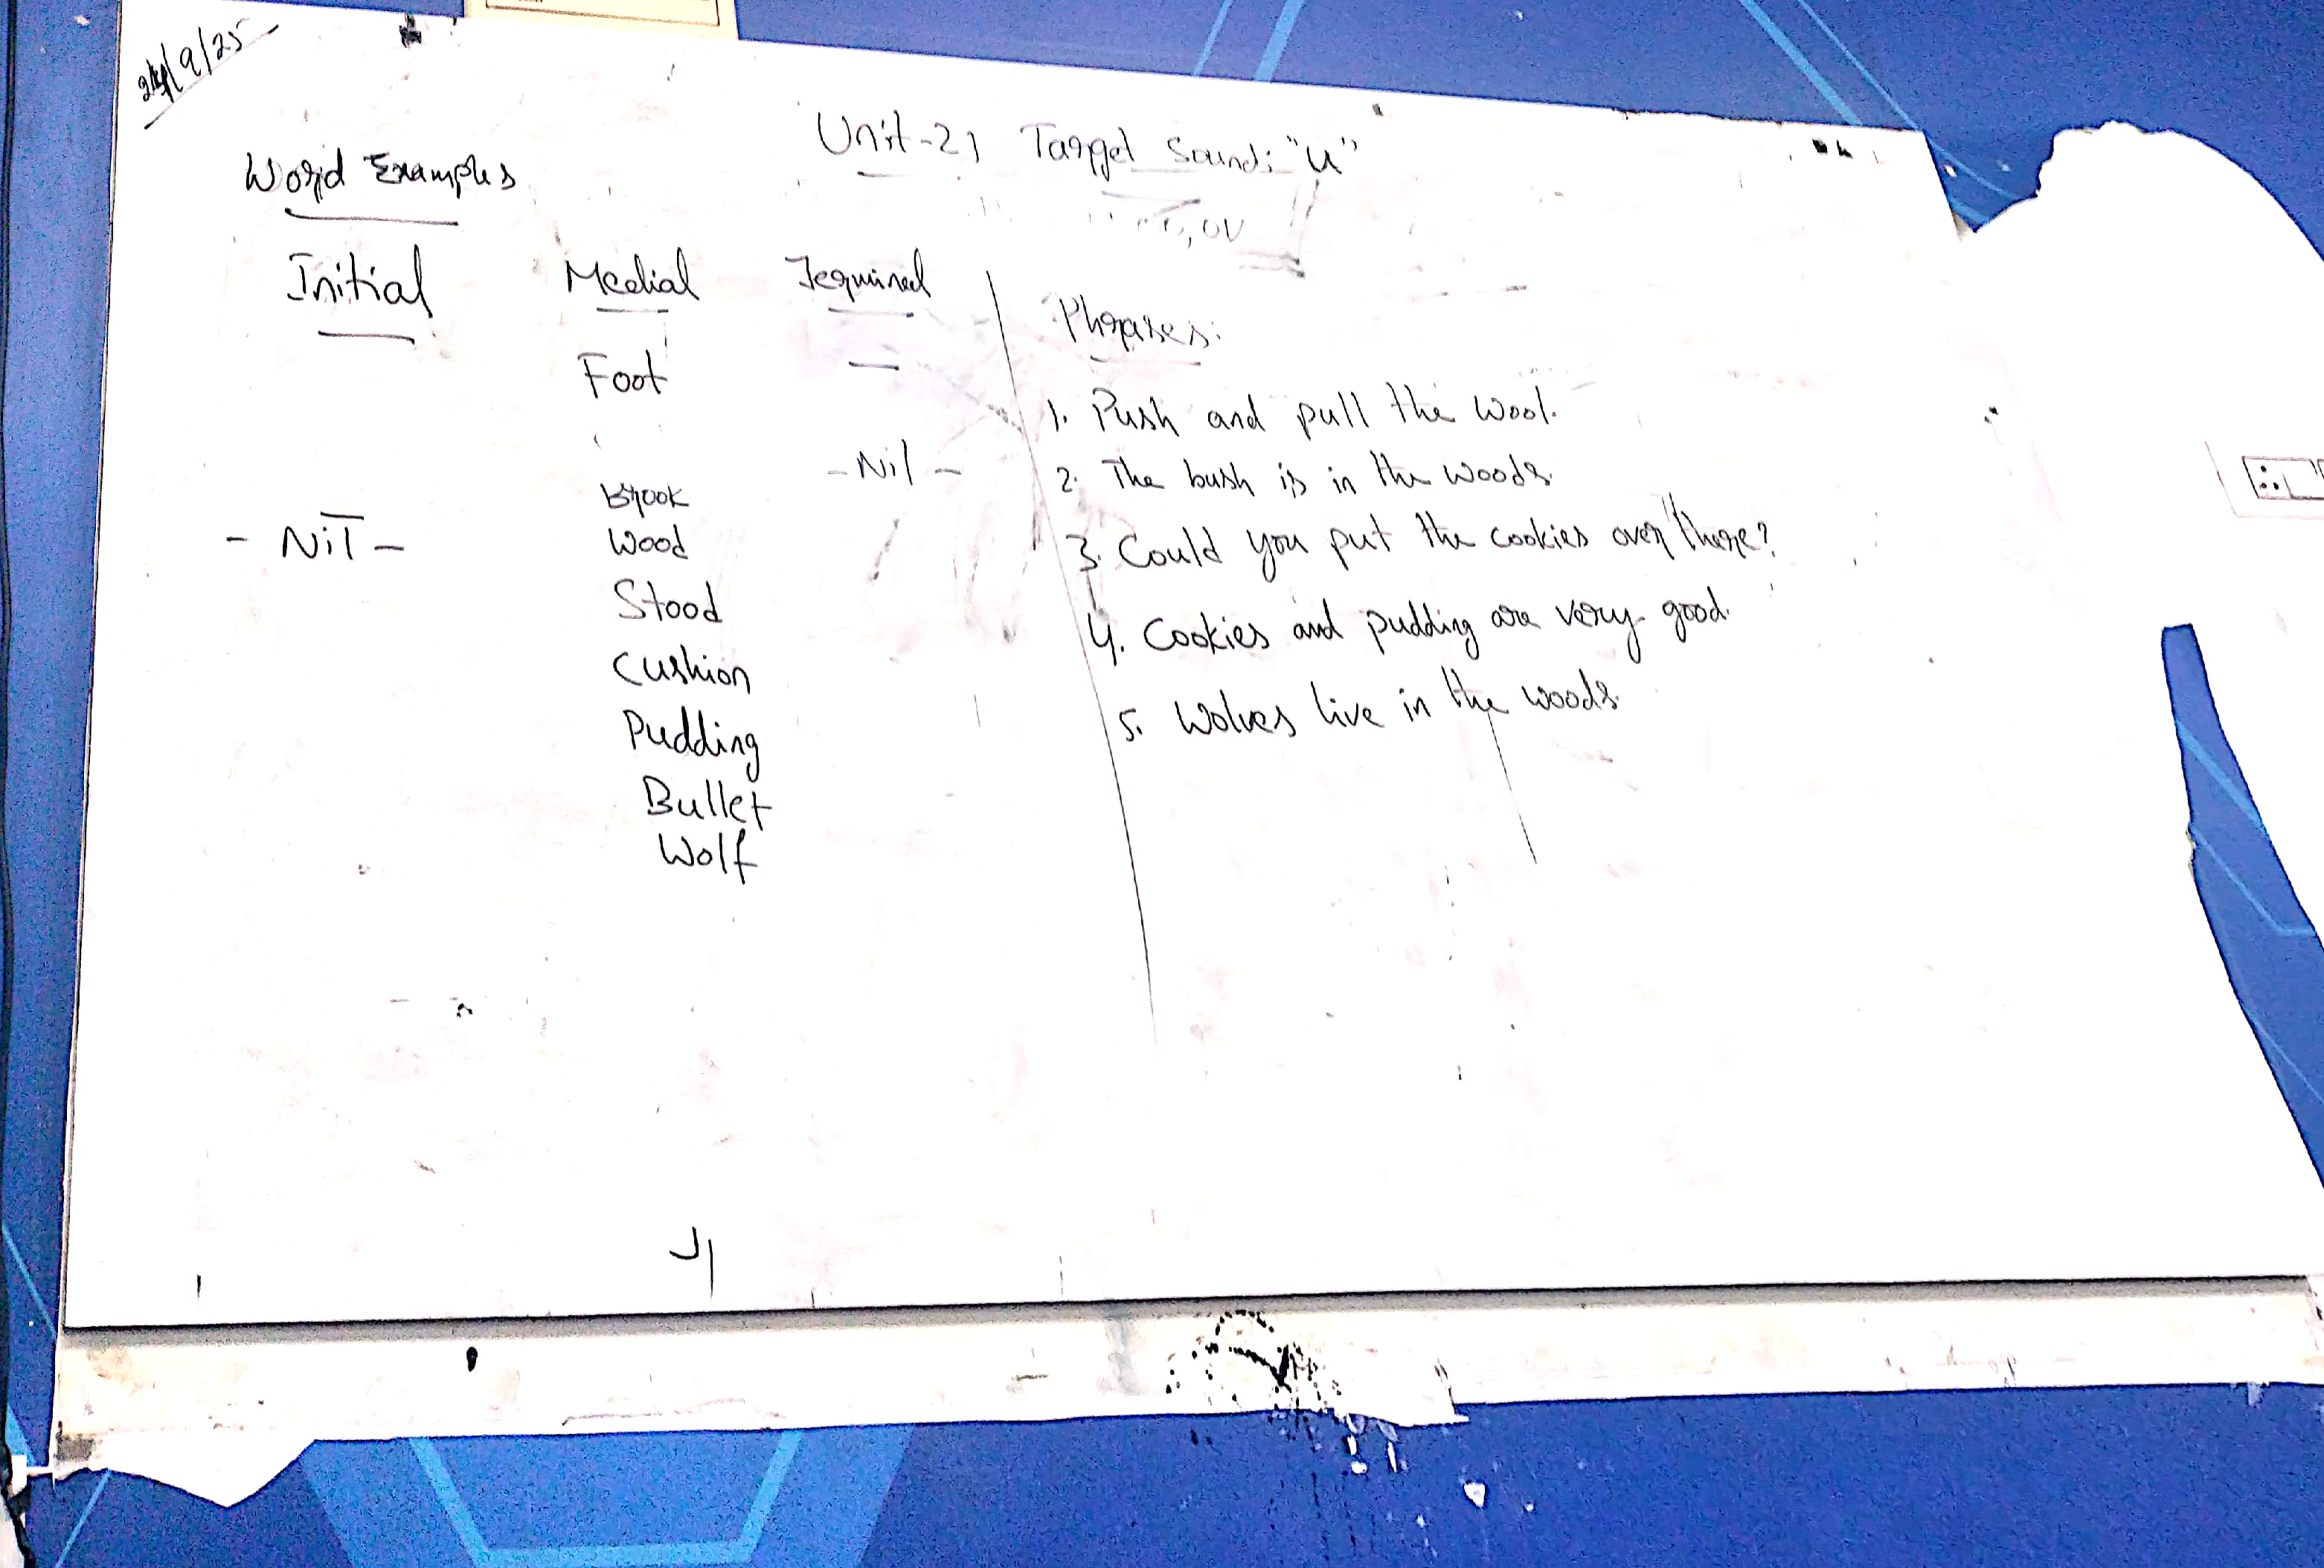 24/9/25
Unit-21 Target Sound: "u"
Word Examples
Initial Medial Terminal
- Nil -
Foot
Brook
Wood
Stood
Cushion
Pudding
Bullet
Wolf
- Nil -
Phrases:
1. Push and pull the wool.
2. The bush is in the woods.
3. Could you put the cookies over there?
4. Cookies and pudding are very good.
5. Wolves live in the woods.